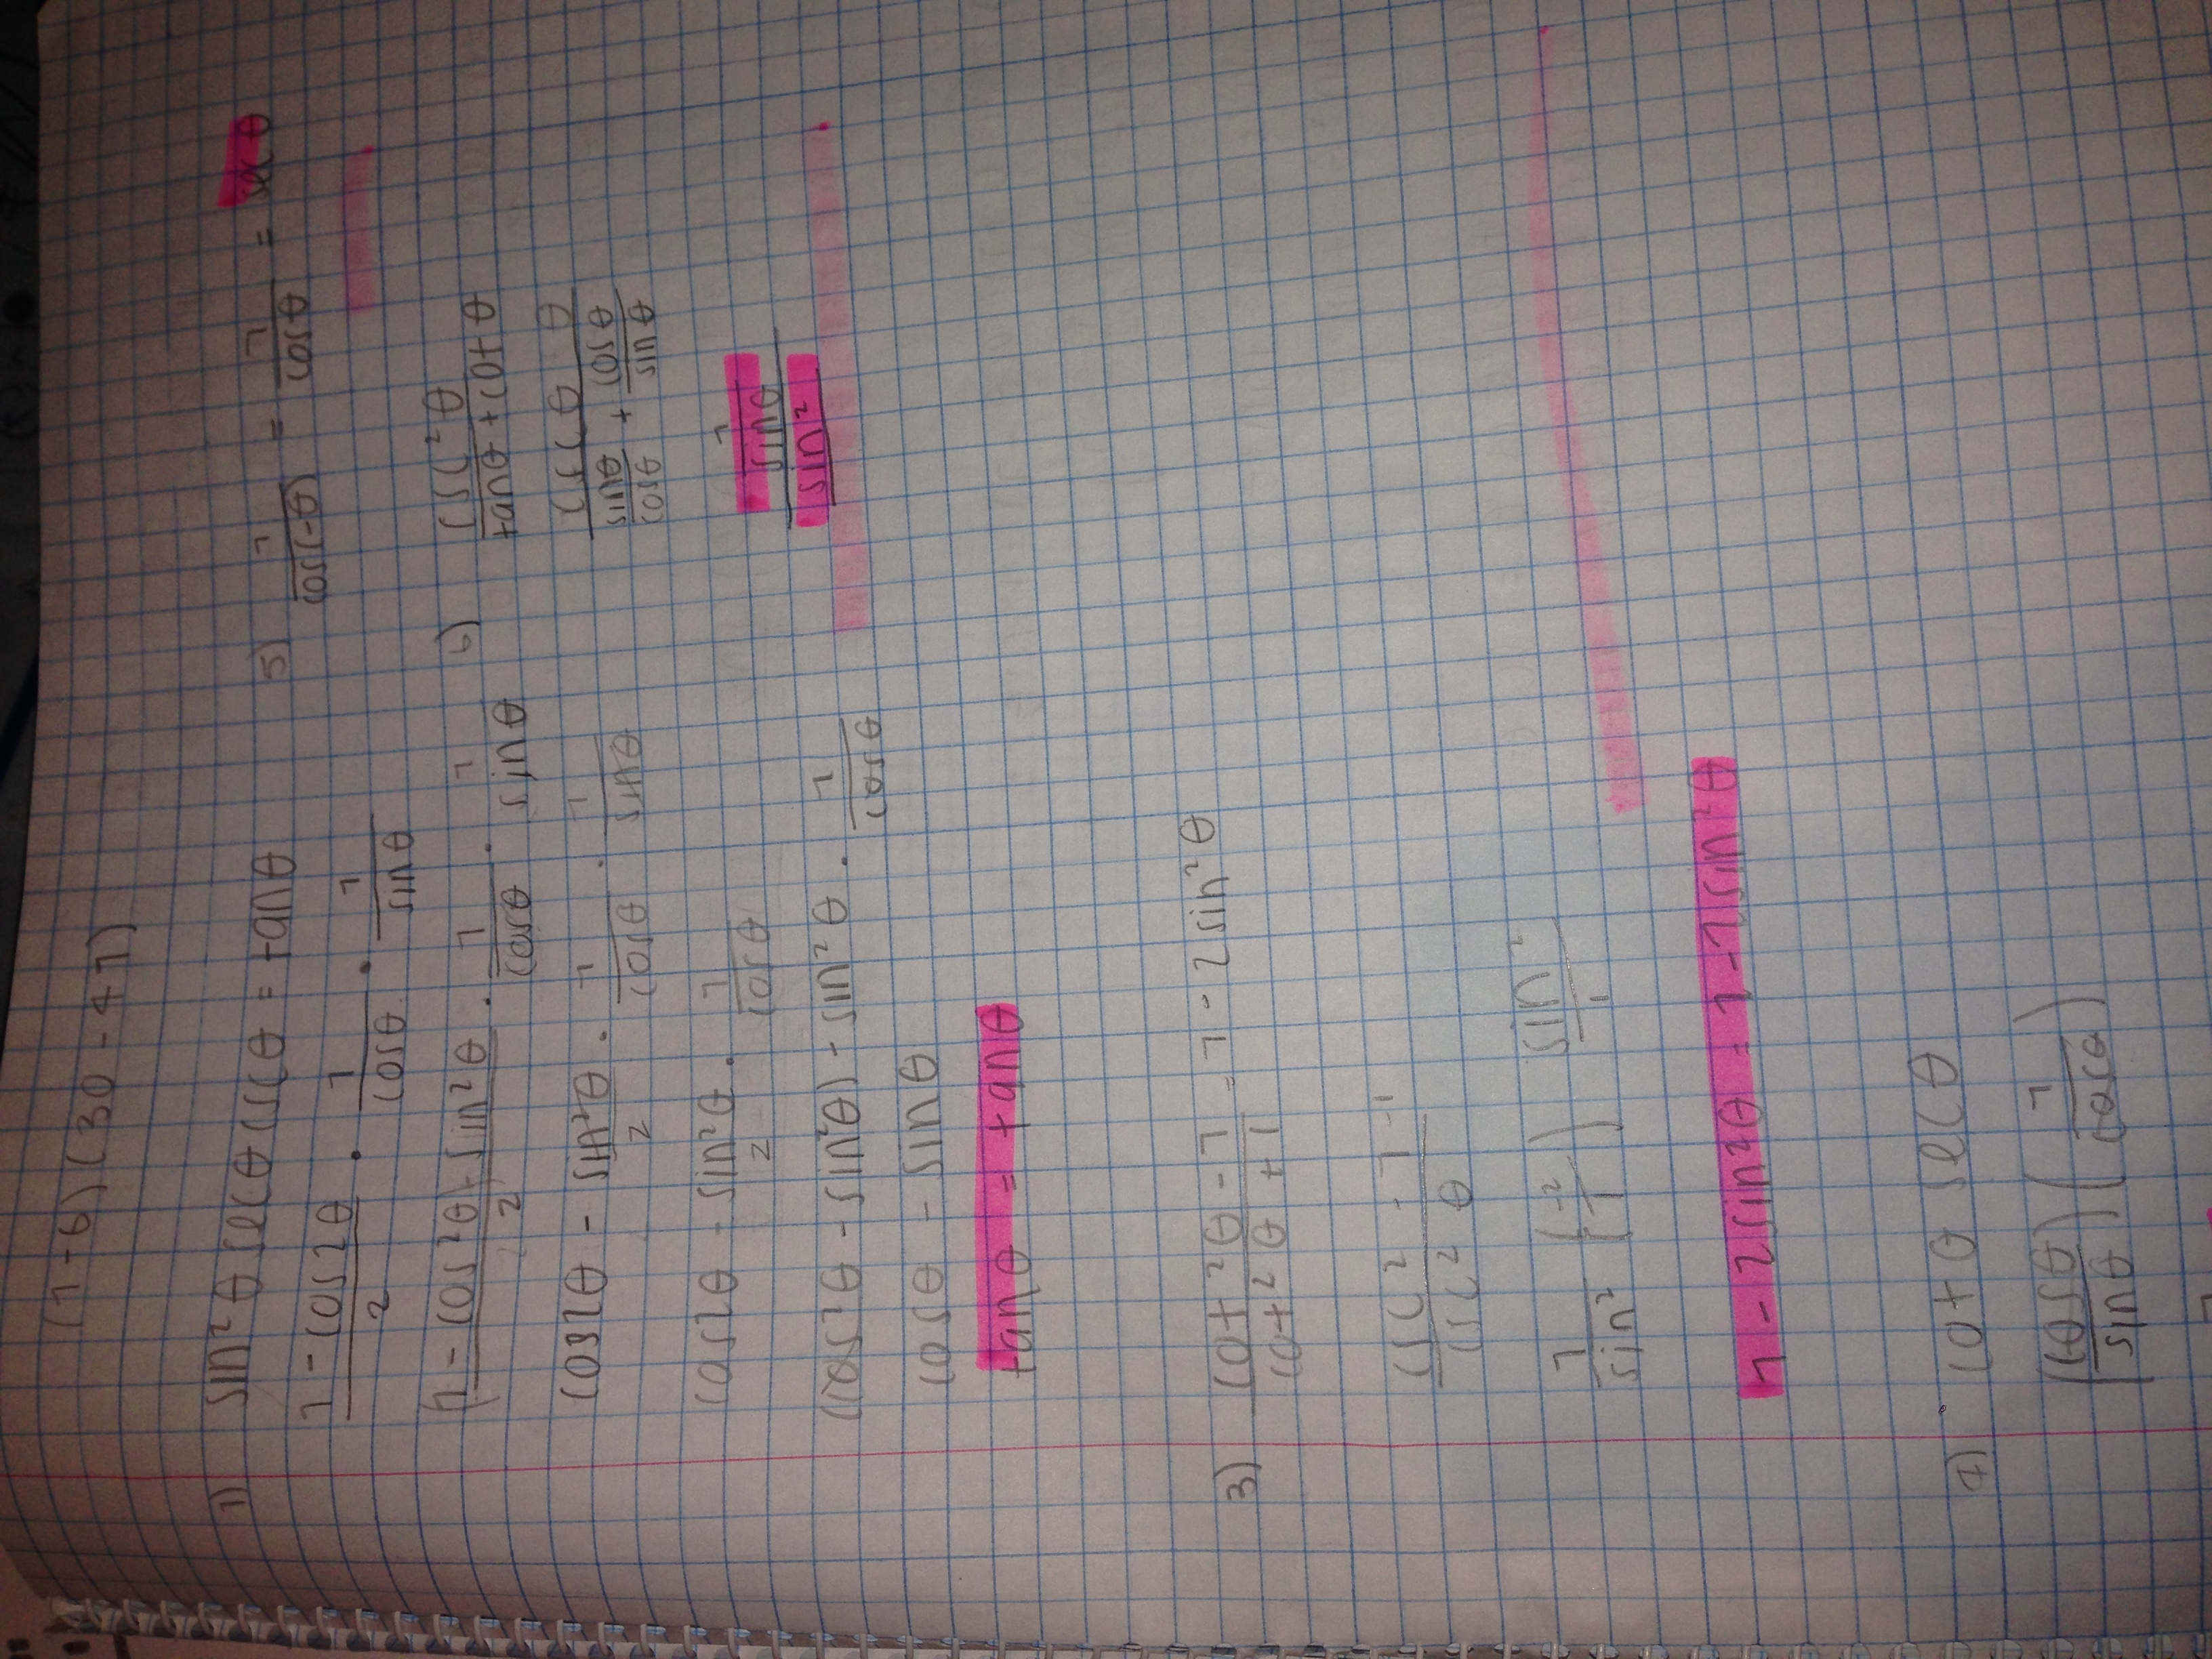 (1-6)(30-41)
1) sin²θ secθ cscθ = tanθ
1 - cos2θ / 2 · 1/cosθ · 1/sinθ
(1 - cos²θ) + sin²θ / 2 · 1/cosθ · 1/sinθ
cos2θ - sin²θ/2 · 1/cosθ · 1/sinθ
cos2θ - sin²θ/2 · 1/cosθ
(cos²θ - sin²θ) - sin²θ · 1/cosθ
cosθ - sinθ
tanθ = tanθ
3) cot²θ - 1 / cot²θ + 1 = 1 - 2sin²θ
csc² - 1 - 1 / csc²θ
1/sin² (-2/1) sin²/1
1 - 2sin²θ = 1 - 2sin²θ
4) cotθ secθ
(cosθ/sinθ)(1/cosθ)
5) 1/cos(-θ) = 1/cosθ = secθ
6) csc²θ / tanθ + cotθ
cscθ θ / sinθ/cosθ + cosθ/sinθ
1/sinθ / sin²